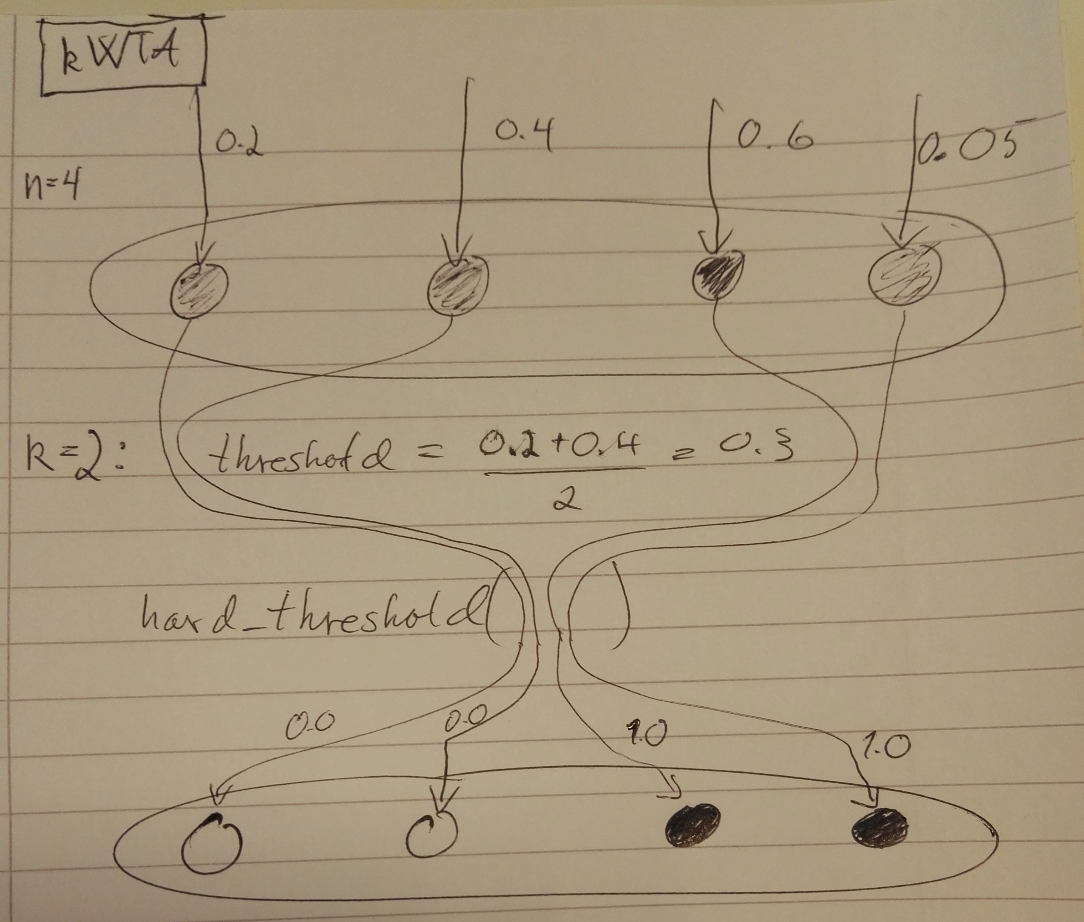 kWTA
0.2 0.4 0.6 0.05
n=4
k=2: threshold = 0.2+0.4 = 0.3
2
hard_threshold( )
0.0 0.0 1.0 1.0